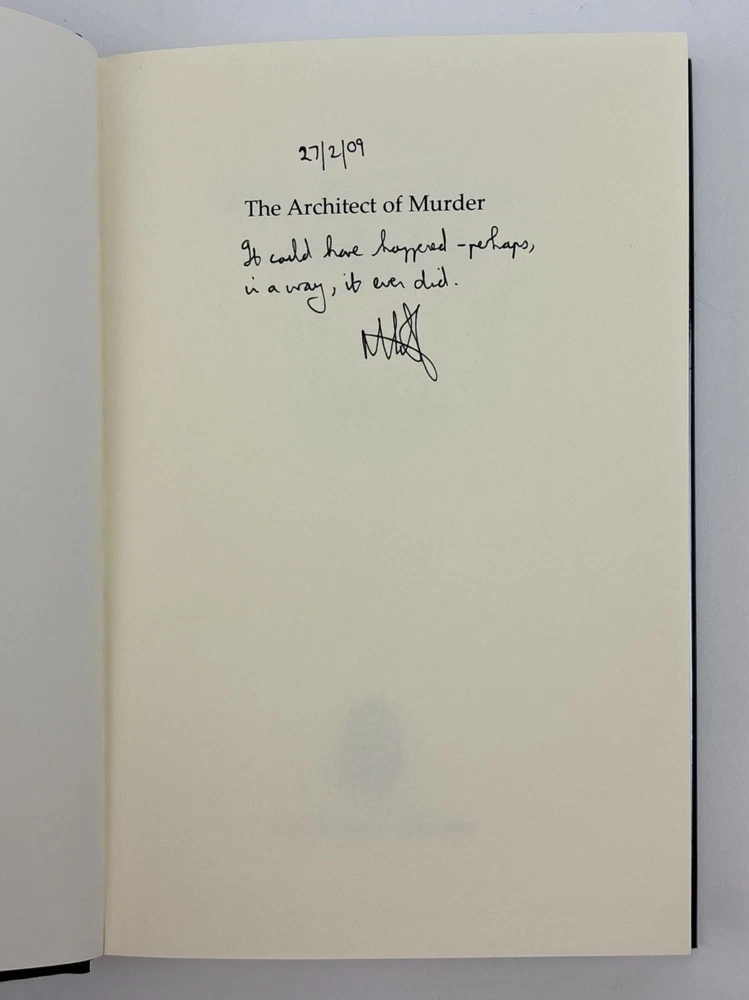 27/2/09
The Architect of Murder
It could have happened - perhaps,
in a way, it even did.